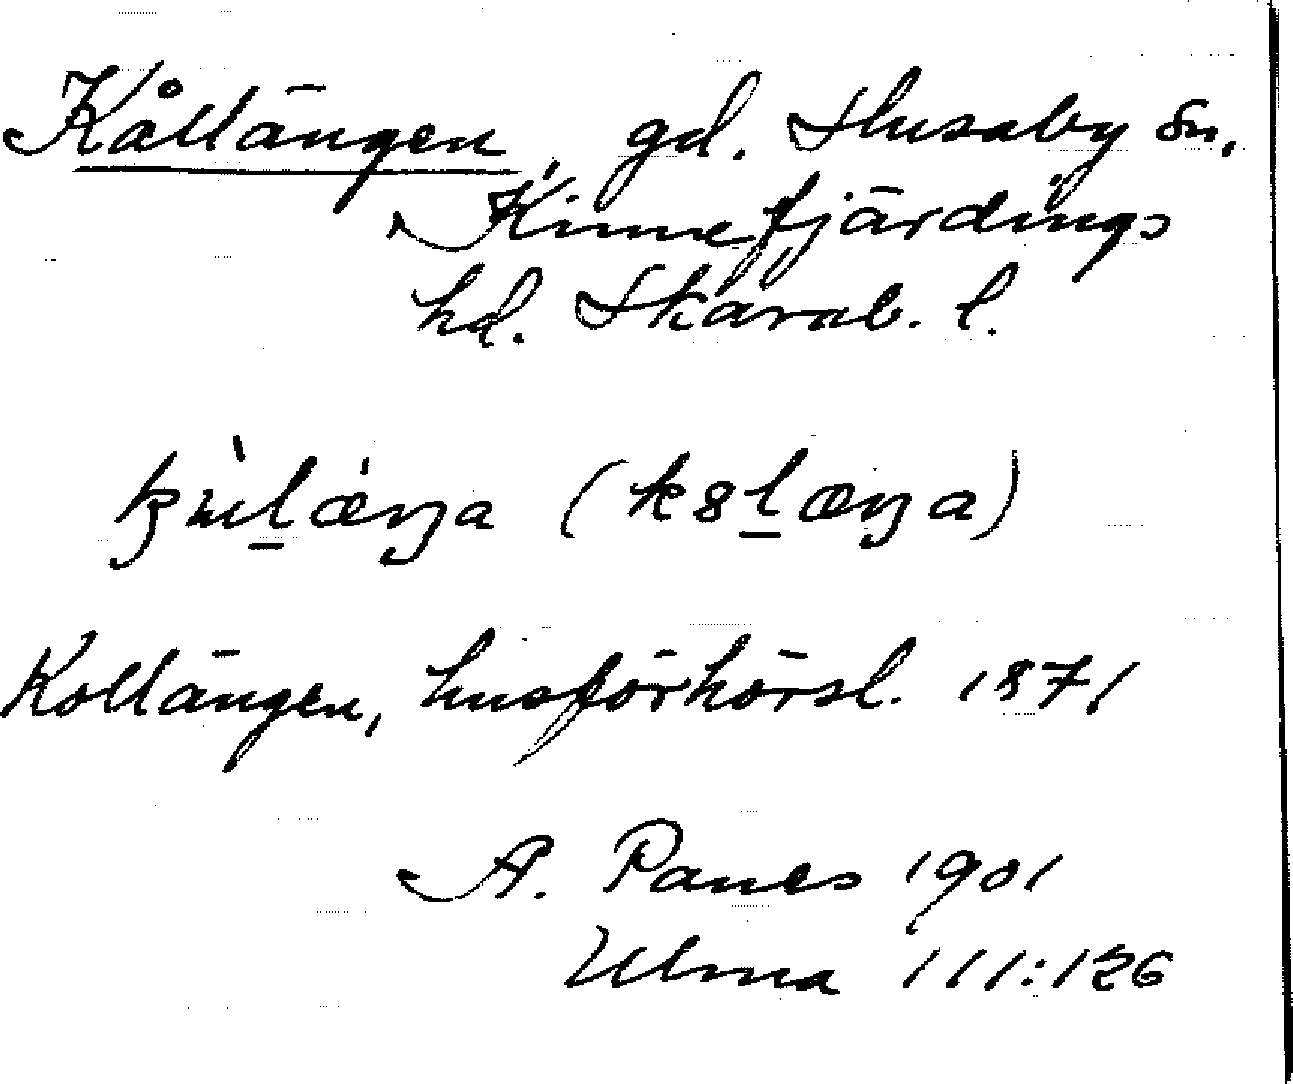 Kållängen, gd. Husaby sn,
Kinnefjärdings
hd. Skarab. l.
(k8læŋa)
Kollängen, husförhörsl. 1871
A. Panes 1901
Ulma 111:126